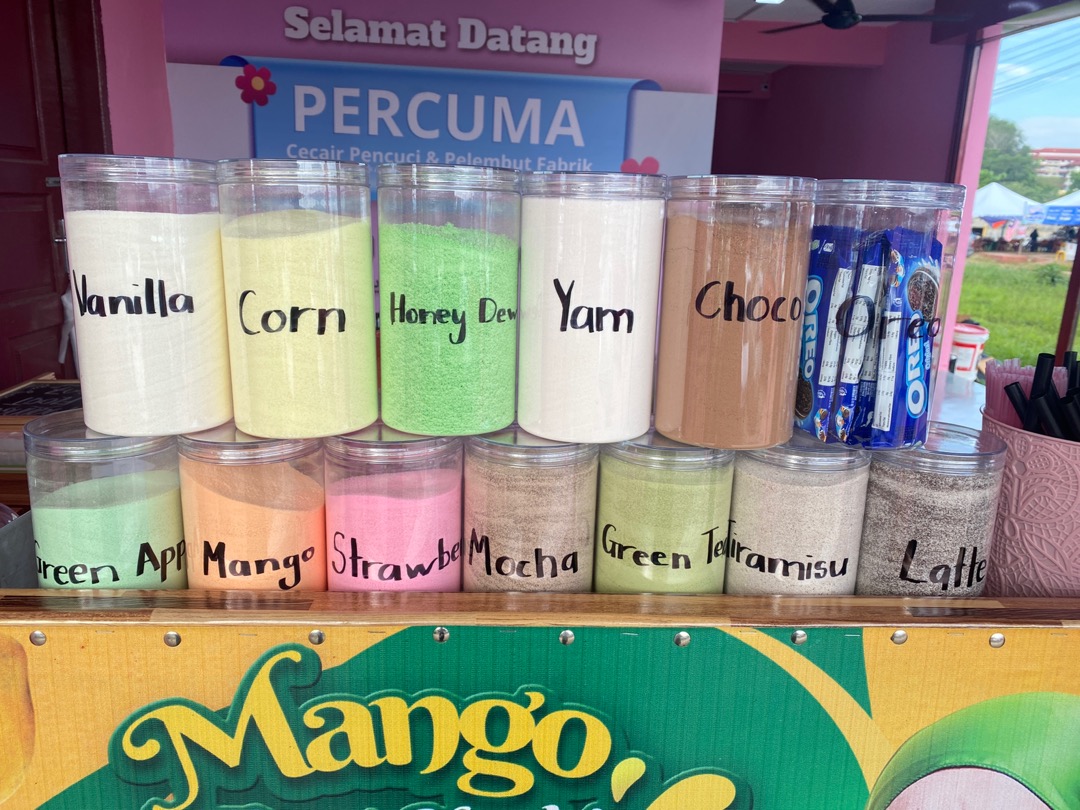 Selamat Datang
PERCUMA
Cecair Pencuci & Pelembut Fabrik
Vanilla
Corn
Honey Dew
Yam
Choco
Oreo
OREO
OREO
Green App
Mango
Strawbe
Mocha
Green Te
Tiramisu
Latte
Mango